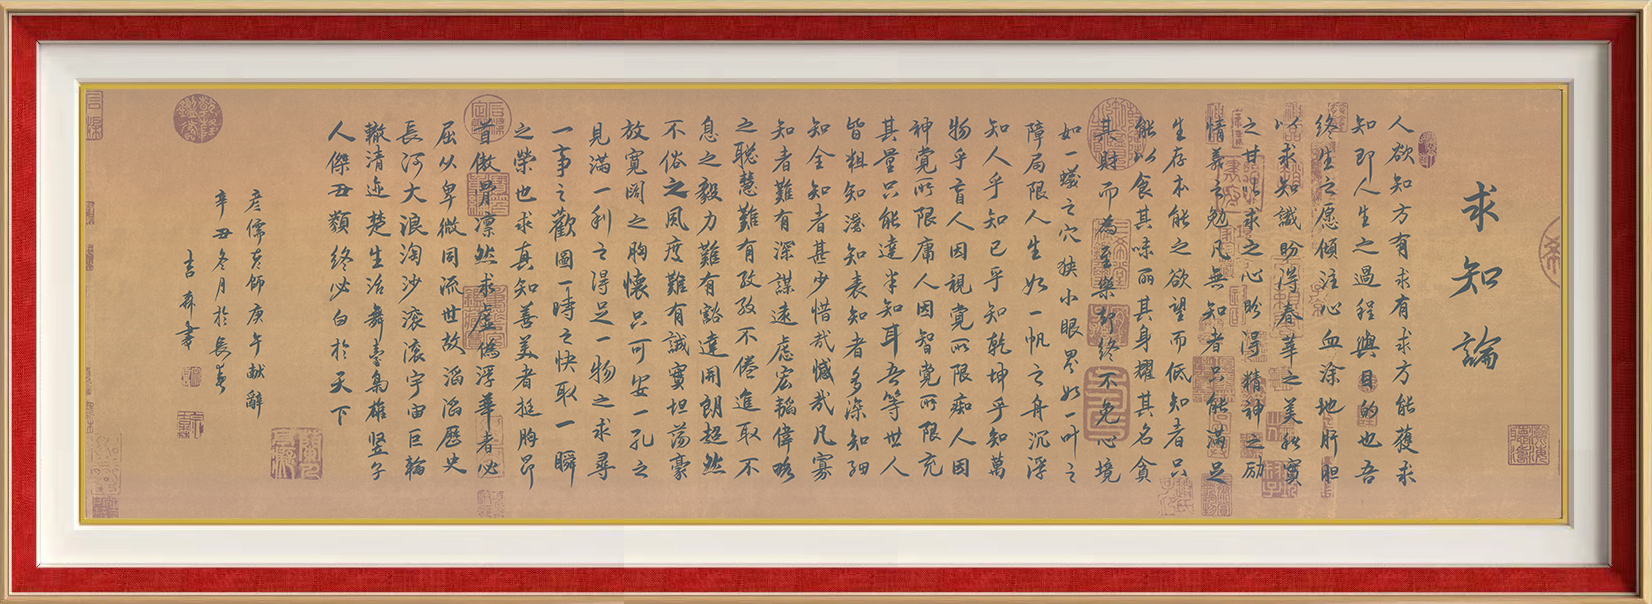 求知論
人欲知方有求有求方能獲求
知即人生之過程與目的也吾
終生之愿傾注心血涂地肝胆
以求知識盼得春華之美秋實
之甘此求之心盼得精神之励
情義之勉凡無知者只能滿足
生存本能之欲望而低知者只
能以食其味丽其身耀其名貪
其財而為至樂却終不免心境
如一蟻之穴狹小眼界如一叶之
障局限人生如一帆之舟沉浮
知人乎知己乎知乾坤乎知萬
物乎盲人因視覺所限痴人因
神覺所限庸人因智覺所限充
其量只能達半知耳吾等世人
皆粗知淺知表知者多深知細
知全知者甚少惜哉憾哉凡寡
知者難有深謀遠慮宏韜偉略
之聪慧難有孜孜不倦進取不
息之毅力難有豁達開朗超然
不俗之風度難有誠實坦蕩豪
放寬闊之胸懷只可安一孔之
見滿一利之得足一物之求尋
一事之歡圖一時之快取一瞬
之榮也求真知善美者挺胸昂
首傲骨凛然求虛偽浮華者必
屈从卑微同流世故滔滔歷史
長河大浪淘沙滚滚宇宙巨輪
轍清迹楚生活舞臺梟雄竖子
人傑丑類終必白於天下
彦儒彦師庚午献辭
辛丑冬月於長春